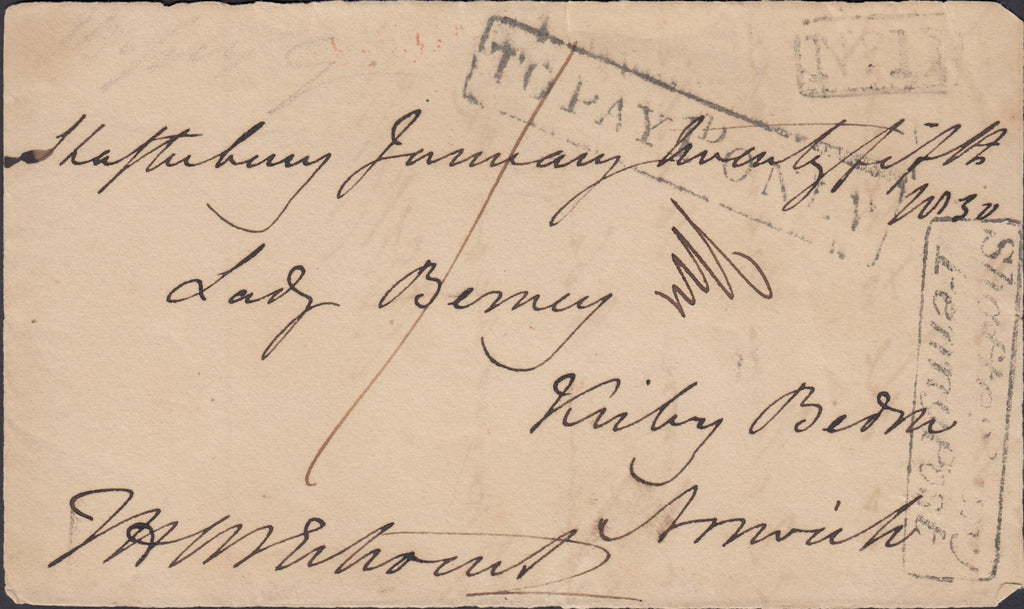 TO PAY 1D ONLY
Shaftesbury January twenty fifth
1830
Lady Berney
Kirby Bedon
Norwich
Shaftesbury
Penny Post